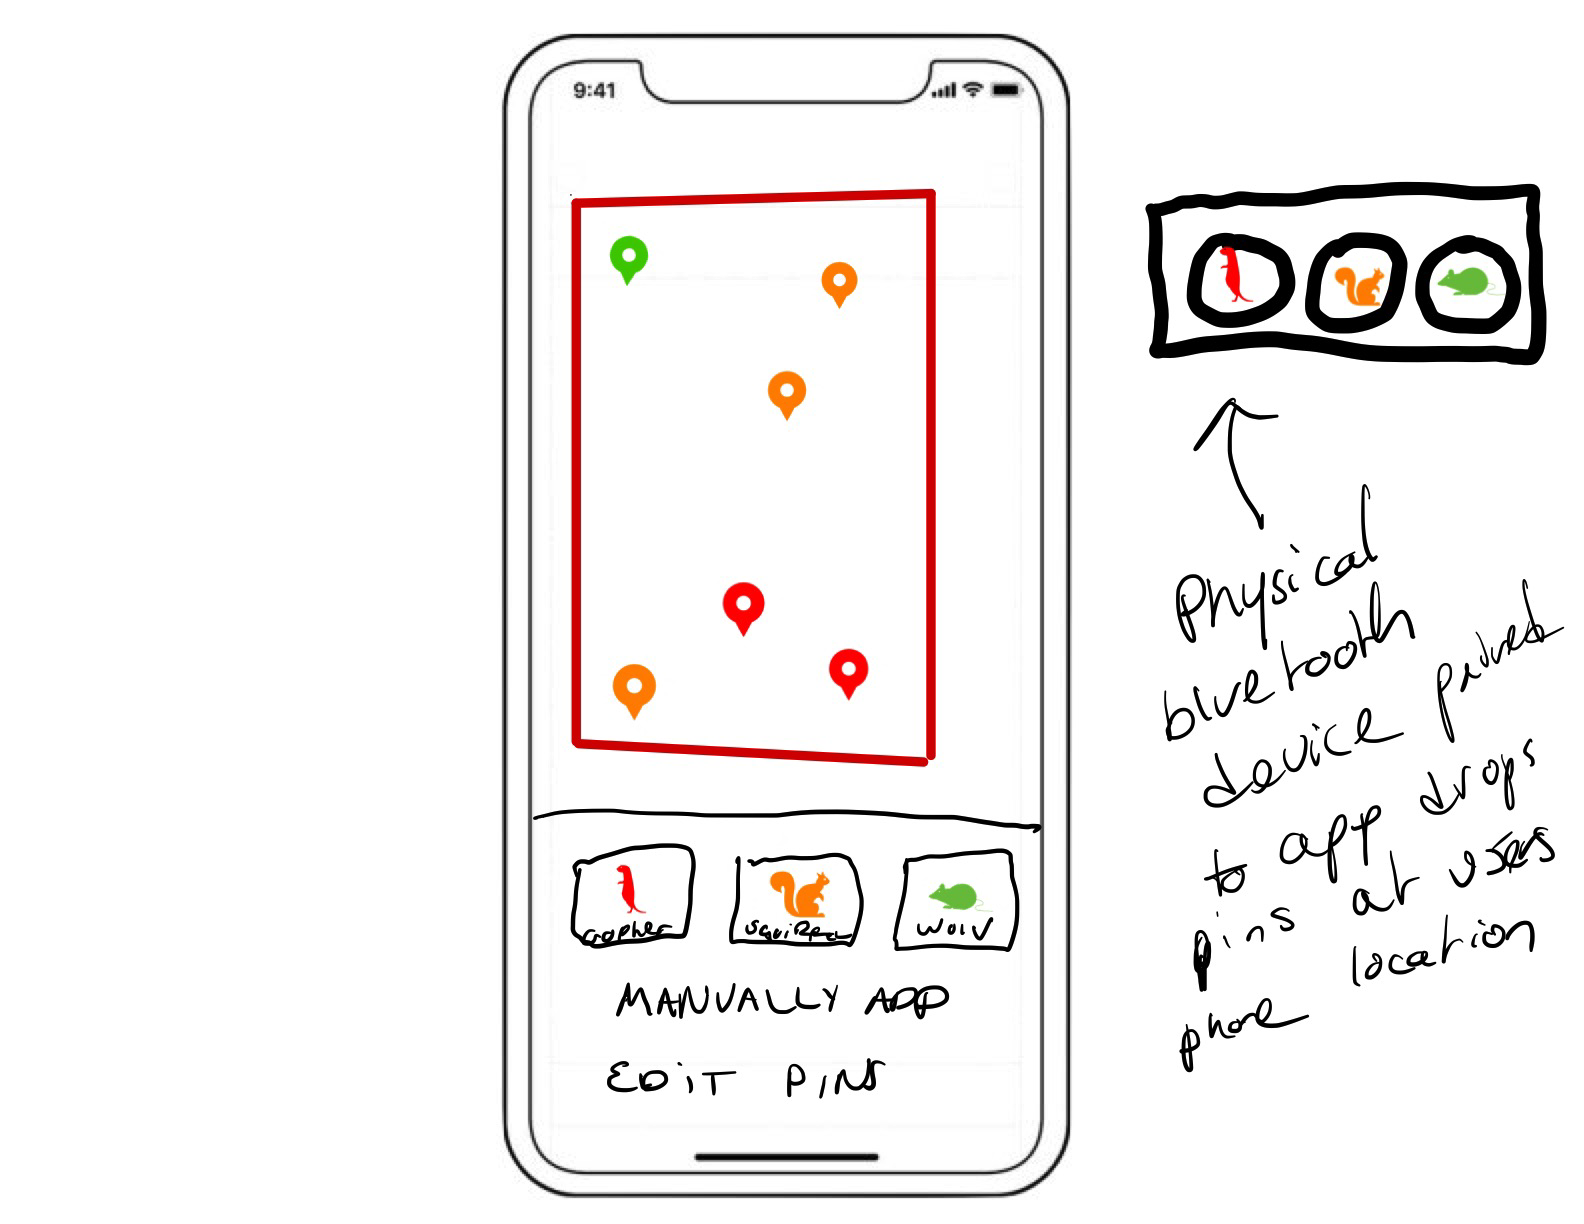 9:41
Gopher
Squirrel
Wolv
MANUALLY ADD
EDIT PINS
Physical
bluetooth
device paired
to app drops
pins at users
phone location